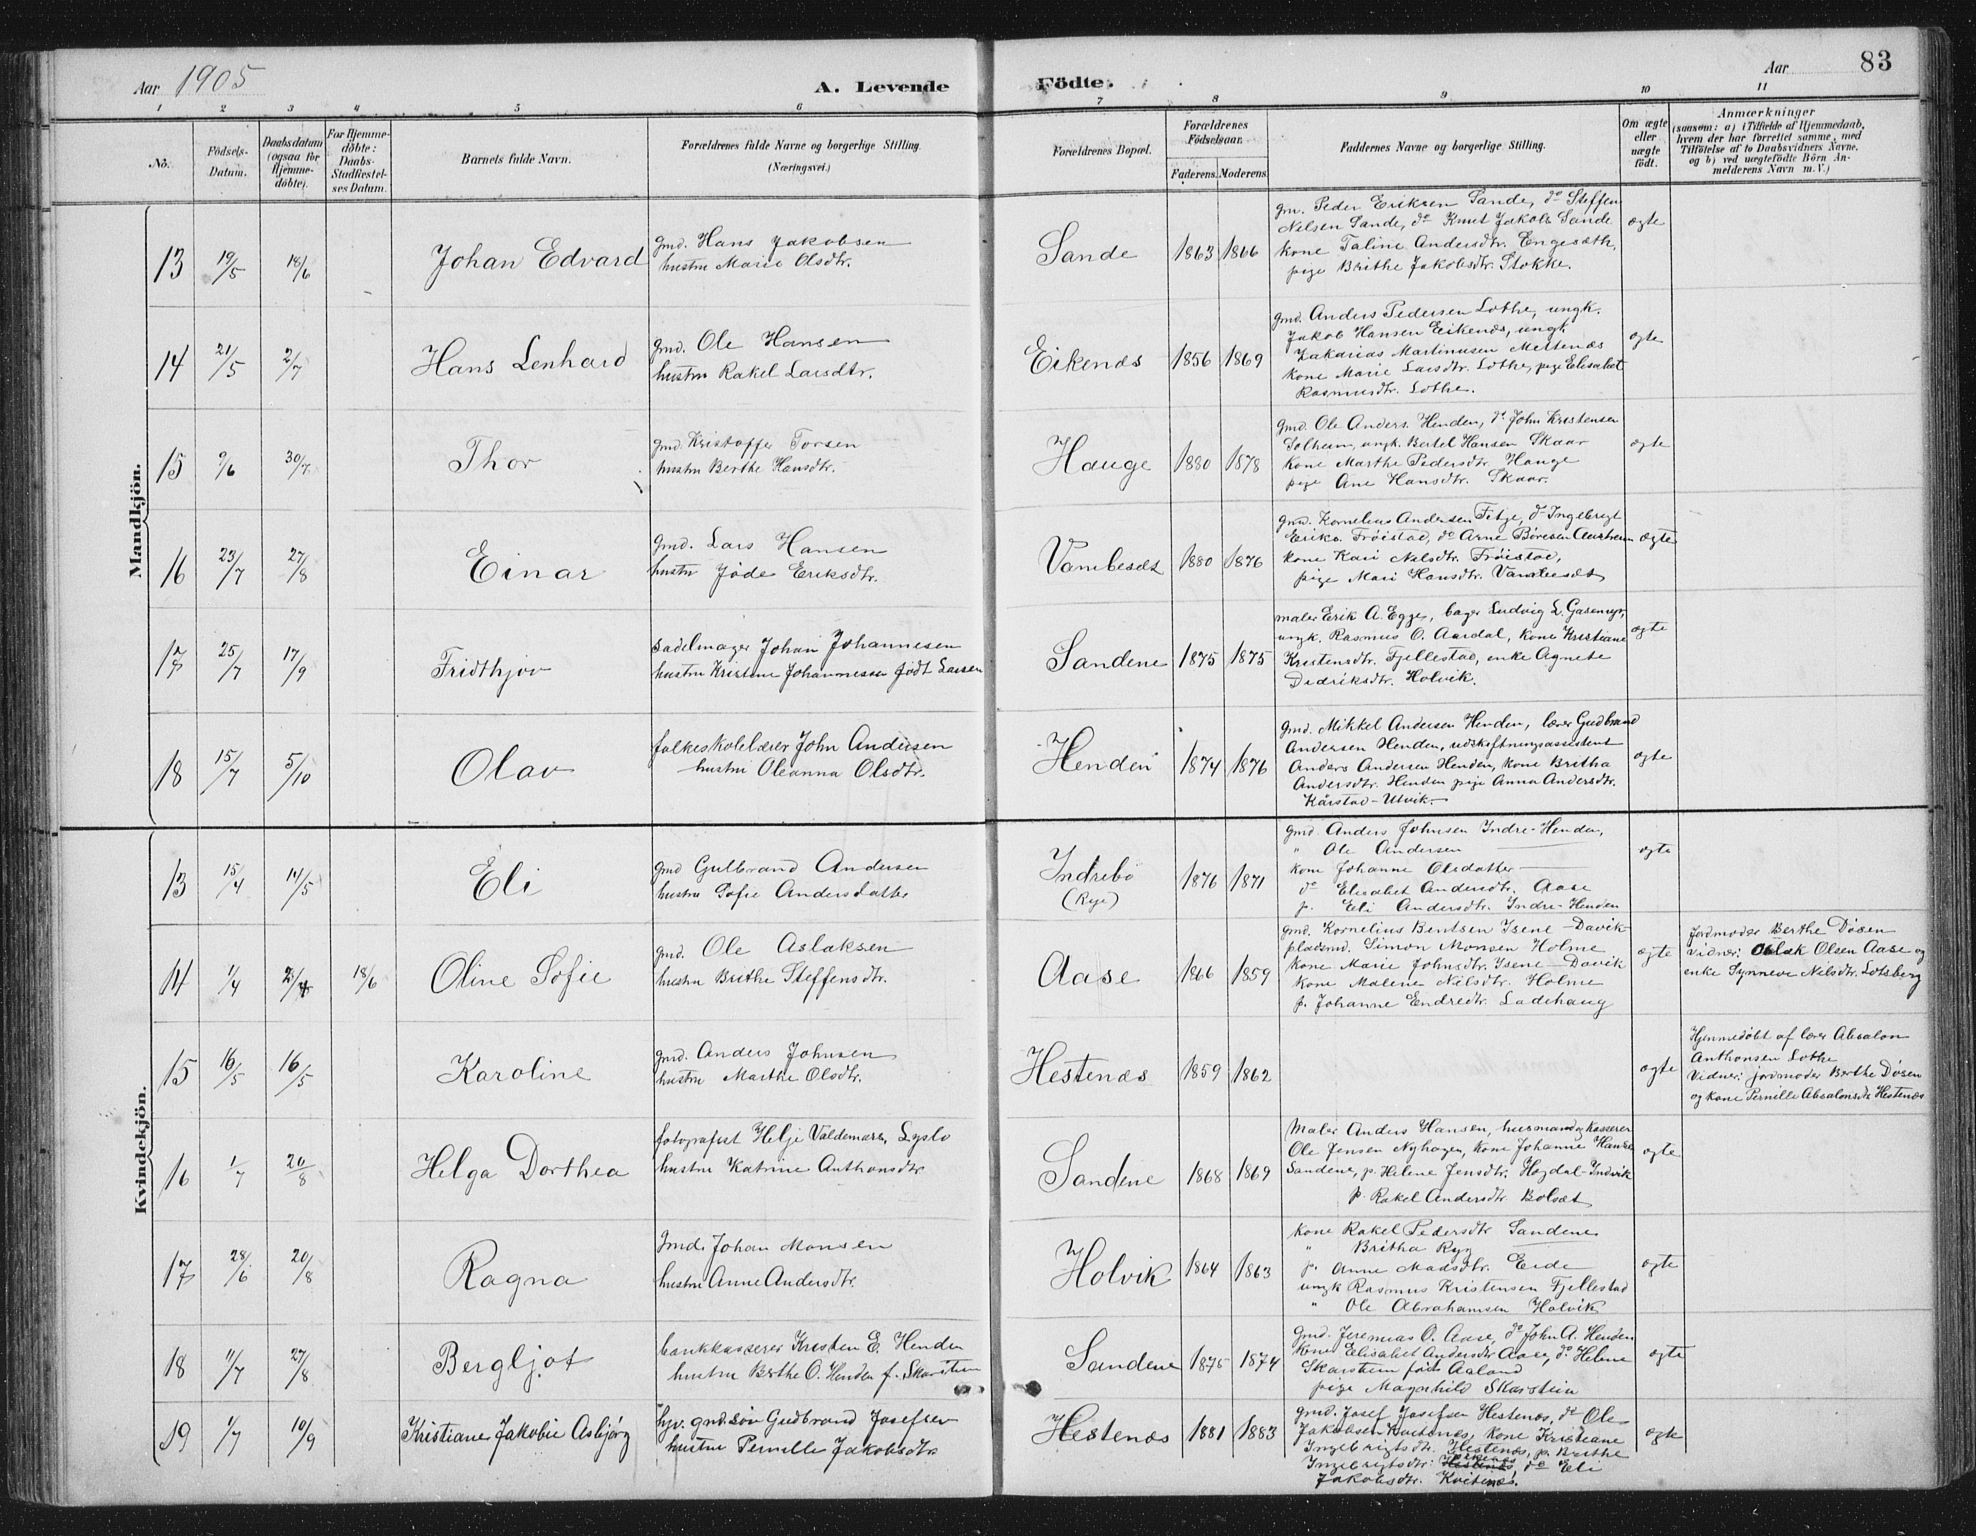 Aar 1905
A. Levende Födte.
Aar
83
1 2 3 4 5 6 7 8 9 10 11
No.
Födsels-Datum.
Daabsdatum (ogsaa for Hjemmedöbte).
For Hjemmedöbte: Daabs-Stadfæstelses Datum.
Barnets fulde Navn.
Forældrenes fulde Navne og borgerlige Stilling. (Næringsvei.)
Forældrenes Bopæl.
Forældrenes Födselsaar.
Faderens. Moderens.
Faddernes Navne og borgerlige Stilling.
Om ægte eller uægte födt.
Anmærkninger
(saasom: a) i Tilfælde af Hjemmedaab, hvem der har forrettet samme, med Tilföielse af to Daabsvidners Navne, og b) ved uægtefödte Börn Anmelderens Navn m. V.)
Mandkjön.
13 19/5 18/6 Johan Edvard
gmd. Hans Jakobsen
hustru Marie Olsdtr.
Sande 1863 1866
gm. Peder Eriksen Sande, do Steffen
Nilsen Sande, do Knut Jakobs Sande
kone Taline Andersdtr. Engesæth,
pige Brithe Jakobsdtr. Stokke.
ægte
14 21/5 2/7 Hans Lenhard
gmd. Ole Hansen
hustru Rakel Larsdtr.
Eikenæs 1856 1869
gmd. Anders Pedersen Lothe, ungk.
Jakob Hansen Eikenæs, ungk
Zakarias Martinusen Mettenæs
kone Marie Larsdtr. Lothe, pige Elisabet
Rasmusdtr. Lothe.
ægte
15 9/6 30/7 Thor
gmd. Kristoffer Torsen
hustru Berthe Hansdtr.
Hauge 1880 1878
gmd. Ole Anders. Henden, do John Kristensen
Solheim, ungk. Bertel Hansen Skaar
kone Marthe Pedersdtr. Hauge
pige Ane Hansdtr. Skaar.
ægte
16 23/7 27/8 Einar
gmd. Lars Hansen
hustru Jøde Eriksdtr.
Vambesæt 1880 1876
gmd. Kornelius Andersen Fitje, do Ingebrigt
Eriks. Frøistad, do Arne Børesen Austreim
kone Kari Nilsdtr. Frøistad,
pige Mari Hansdtr. Vambesæt
ægte
17 25/7 17/9 Fridthjov
sadelmager Johan Johannesen
hustru Kristine Johannesen født Larsen
Sandene 1875 1875
maler Erik A. Egge, bager Ludvig L. Gasemyr,
ungk. Rasmus O. Aardal, kone Kristiane
Kristensdtr. Fjellestad, enke Agnete
Didriksdtr. Holvik.
ægte
18 15/7 5/10 Olav
folkeskolelærer John Andersen
hustru Oleanna Olsdtr.
Henden 1874 1876
gmd. Mikkel Andersen Henden, lærer Gudbrand
Andersen Henden, udskiftningsassistent
Anders Andersen Henden, kone Britha
Andersdtr. Henden pige Anna Andersdtr.
Kårstad-Utvik.
ægte
Kvindekjön.
13 15/4 14/5 Eli
gmd Gulbrand Andersen
hustru Sofie Andersdatter
Indrebø
(Ryg)
1876 1871
gmd Anders Johnsen Indre-Henden,
" Ole Andersen
kone Johanne Olsdatter
do Elisabet Andersdtr. Aase
p. Eli Andersdtr. Indre-Henden
ægte
14 1/4 2/4 18/6 Oline Sofie
gmd. Ole Aslaksen
hustru Brithe Steffensdtr.
Aase 1866 1859
gmd. Kornelius Bentsen Isene-Davik
pladsmd. Simon Monsen Holme
kone Marie Johnsdtr. Isene-Davik
kone Malene Nilsdtr. Holme
p. Johanne Endredtr. Ladehaug
ægte
Jordmoder Berthe Døsen
vidner: Aslak Olsen Aase og
enke Synneve Nilsdtr. Lotsberg
15 16/5 16/5 Karoline
gmd. Anders Johnsen
hustru Marthe Olsdtr.
Hestenæs 1859 1862
ægte
Hjemmedøbt af lærer Absalon
Anthonsen Lothe
Vidner: jordmoder Berthe Døsen
og kone Pernille Absalonsdtr Hestenæs
16 1/7 20/8 Helga Dorthea
fotografist Helje Valdemars. Lyslo
hustru Katrine Anthonsdtr
Sandene 1868 1869
Maler Anders Hansen, husmand og kasserer
Ole Jensen Nyhagen, kone Johanne Hansen
Sandene, p. Helene Jensdtr. Hogdal-Indvik
p. Rakel Andersdtr Bolsæt
ægte
17 28/6 20/8 Ragna
Gmd. Johan Monsen
hustru Anne Andersdtr.
Holvik 1864 1863
kone Rakel Pedersdtr Sandene
" Britha Ryg
p. Anne Madsdtr. Eide
ungk Rasmus Kristensen Fjellestad
" Ole Abrahamsen Holvik
ægte
18 11/7 27/8 Bergljot
bankkasserer Kristen E. Henden
hustru Berthe O. Henden f. Skarstein
Sandene 1875 1874
gmd. Jeremias O. Aase, do John A. Henden
kone Elisabet Andersdtr Aase, do Helene
Skarstein født Aaland
pige Magnhild Skarstein
ægte
19 1/7 10/9 Kristiane Jakobie Asbjørg
hjv. gmdssøn Gudbrand Josefsen
hustru Pernille Jakobsdtr
Hestenæs 1881 1883
gmd. Josef Josefsen Hestenæs, do Ole
Jakobsen Kvitenæs, kone Kristiane
Ingebrigtsdtr. Hestenæs, p. Brithe
Ingebrigtsdtr. Eikenæs, do Eli
Jakobsdtr. Kvitenæs.
ægte